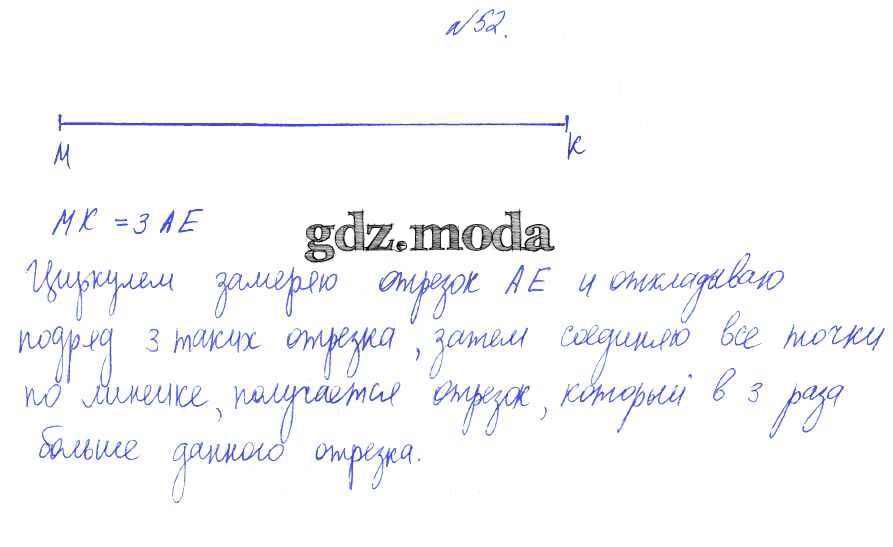 №52.
М К
МК = 3 АЕ
gdz.moda
Циркулем замеряю отрезок АЕ и откладываю
подряд 3 таких отрезка, затем соединяю все точки
по линейке, получается отрезок, который в 3 раза
больше данного отрезка.